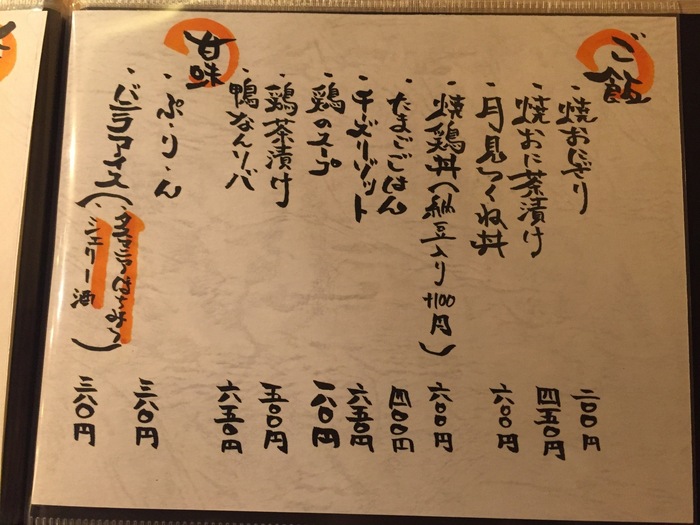 ご飯
・焼おにぎり 二〇〇円
・焼おに茶漬け 四五〇円
・月見つくね丼 六〇〇円
・焼鶏丼(納豆入り+100円) 六〇〇円
・たまごごはん 四〇〇円
・チーズリゾット 六五〇円
・鶏のスープ
・鶏茶漬け 五〇〇円
・鴨なんソバ 六五〇円
甘味
・ぷ・り・ん 三八〇円
・バニラアイス(・タスマニアはちみつ
・シェリー酒) 三八〇円